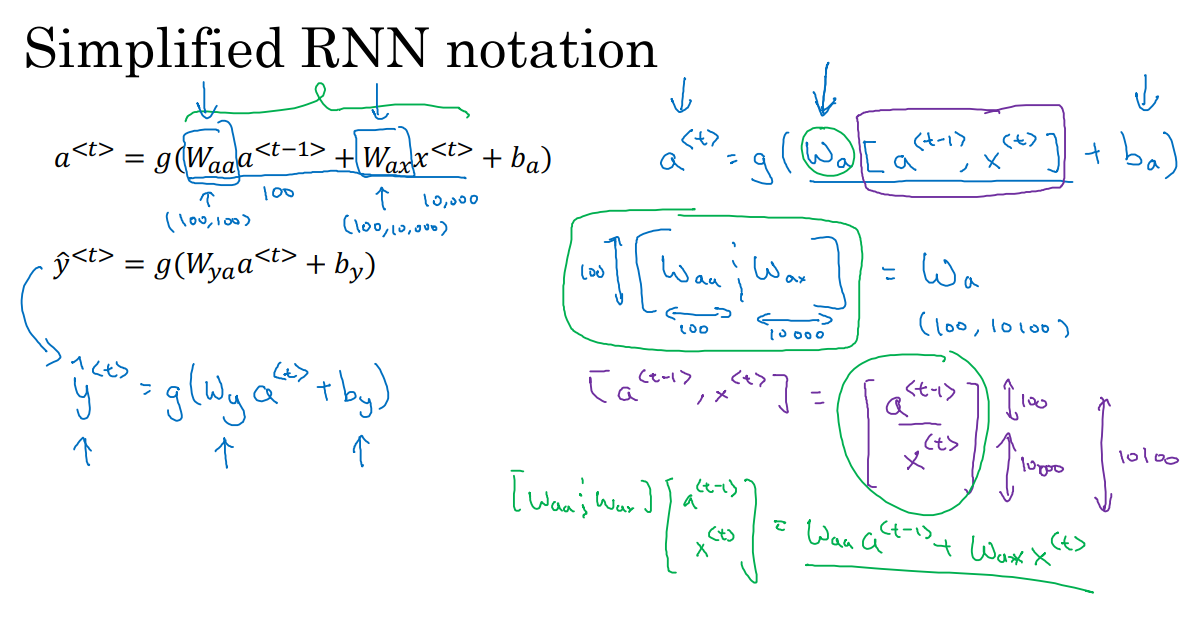 Simplified RNN notation
a<t> = g(Waaa<t−1> + Waxx<t> + ba)
100
10,000
(100,100)
(100,10,000)
ŷ<t> = g(Wyaa<t> + by)
ŷ<t> = g(Wy a<t> + by)
a<t> = g(Wa[a<t-1>, x<t>] + ba)
100 [Waa ¦ Wax] = Wa
100
10000
(100, 10100)
[a<t-1>, x<t>] = [a<t-1> x<t>]
100
10000
10100
[Waa ¦ Wax] [a<t-1> x<t>] = Waa a<t-1> + Wax x<t>